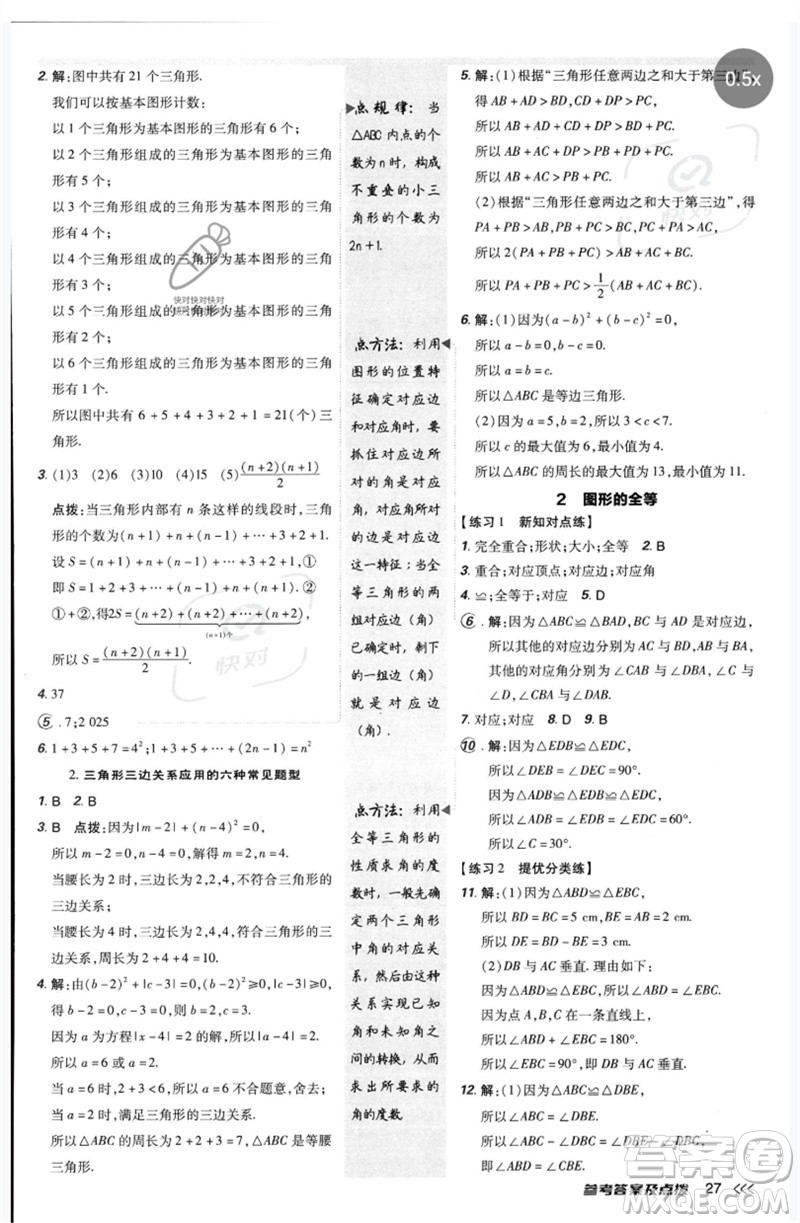 2. 解:图中共有 21 个三角形.
我们可以按基本图形计数:
以 1 个三角形为基本图形的三角形有 6 个;
以 2 个三角形组成的三角形为基本图形的三角
形有 5 个;
以 3 个三角形组成的三角形为基本图形的三角
形有 4 个;
以 4 个三角形组成的三角形为基本图形的三角
形有 3 个;
以 5 个三角形组成的三角形为基本图形的三角
形有 2 个;
以 6 个三角形组成的三角形为基本图形的三角
形有 1 个.
所以图中共有 6+5+4+3+2+1=21(个)三
角形.
3. (1)3 (2)6 (3)10 (4)15 (5)(n+2)(n+1)/2
点拨:当三角形内部有 n 条这样的线段时,三角
形的个数为(n+1)+n+(n-1)+…+3+2+1.
设 S=(n+1)+n+(n-1)+…+3+2+1,①
即 S=1+2+3+…+(n-1)+n+(n+1),②
①+②,得2S=(n+2)+(n+2)+…+(n+2),
(n+1)个
所以 S=(n+2)(n+1)/2.
4. 37
⑤. 7;2 025
6. 1+3+5+7=4²;1+3+5+…+(2n-1)=n²
2. 三角形三边关系应用的六种常见题型
1. B 2. B
3. B 点拨:因为|m-2|+(n-4)²=0,
所以 m-2=0,n-4=0,解得 m=2,n=4.
当腰长为 2 时,三边长为 2,2,4,不符合三角形三
边关系;
当腰长为 4 时,三边长为 2,4,4,符合三角形三边
关系,周长为 2+4+4=10.
4. 解:由(b-2)²+|c-3|=0,(b-2)²≥0,|c-3|≥0,
得 b-2=0,c-3=0,解得 b=2,c=3.
因为 a 为方程|x-4|=2的解,所以|a-4|=2.
所以 a=6 或 a=2.
当 a=6 时,2+3<6,所以 a=6 不符合题意,舍去;
当 a=2 时,满足三角形的三边关系.
所以△ABC 的周长为 2+2+3=7,△ABC 是等腰
三角形.
点规律:当
△ABC 内点的个
数为n时,构成
不重叠的小三
角形的个数为
2n+1.
点方法:利用
图形的位置特
征确定对应边
和对应角时,要
抓住对应边所
对的角是对应
角,对应角所对
的边是对应边
这一特征;当全
等三角形的两
组对应边(角)
已确定,剩下
的一组边(角)
就是对应边
(角).
点方法:利用
全等三角形的
性质求角的度
数时,一般先确
定两个三角形
中角的对应关
系,然后由这种
关系实现已知
角和未知角之
间的转换,从而
求出所要求的
角的度数
0.5x
5. 解:(1)根据“三角形任意两边之和大于第三边”
得 AB+AD>BD,PD+CD>PC.
所以 AB+AD+CD+PD>BD+PC.
所以 AB+AC+DP>BP+DP+PC.
所以 AB+AC>PB+PC.
(2)根据“三角形任意两边之和大于第三边”,得
PA+PB>AB,PB+PC>BC,PA+PC>AC.
所以 2(PA+PB+PC)>AB+AC+BC.
所以 PA+PB+PC>1/2(AB+AC+BC).
6. 解:(1)因为(a-b)²+(b-c)²=0,
所以 a-b=0,b-c=0.
所以 a=b=c.
所以△ABC 是等边三角形.
(2)因为 a=5,b=2,所以 3<c<7.
所以 c 的最大值为 6,最小值为 4.
所以△ABC 的周长的最大值为 13,最小值为 11.
2 图形的全等
【练习 1 新知对点练】
1. 完全重合;形状;大小;全等 2. B
3. 重合;对应顶点;对应边;对应角
4. ≌;全等于;对应 5. D
⑥. 解:因为△ABC≌△BAD,BC,AD 是对应边,
所以其他的对应边分别为 AC 与 BD,AB 与
BA,对应角分别为∠BAC 与∠ABD,∠C 与
∠D,∠CBA 与∠DAB.
7. 对应;对应 8. D 9. B
⑩. 解:因为△EDB≌△EDC,
所以∠DEB=∠DEC=90°.
因为△ADB≌△EDB≌△EDC,
所以∠ADB=∠EDB=∠EDC=60°.
所以∠C=30°.
【练习 2 提优分类练】
11. 解:(1)因为△ABD≌△EBC,
所以 BD=BC=5 cm,BE=AB=2 cm.
所以 DE=BD-BE=3 cm.
(2)DB 与 AC 垂直. 理由如下:
因为△ABD≌△EBC,所以∠ABD=∠EBC.
因为点 A,B,C 在一条直线上,
所以∠ABD+∠EBC=180°.
所以∠EBC=90°,即 DB 与 AC 垂直.
12. 解:(1)因为△ABC≌△DBE,
所以∠ABC=∠DBE.
所以∠ABC-∠DBC=∠DBE-∠DBC,
即∠ABD=∠CBE.
快对快对快对
快对
快对
答案圈
参考答案及点拨 27